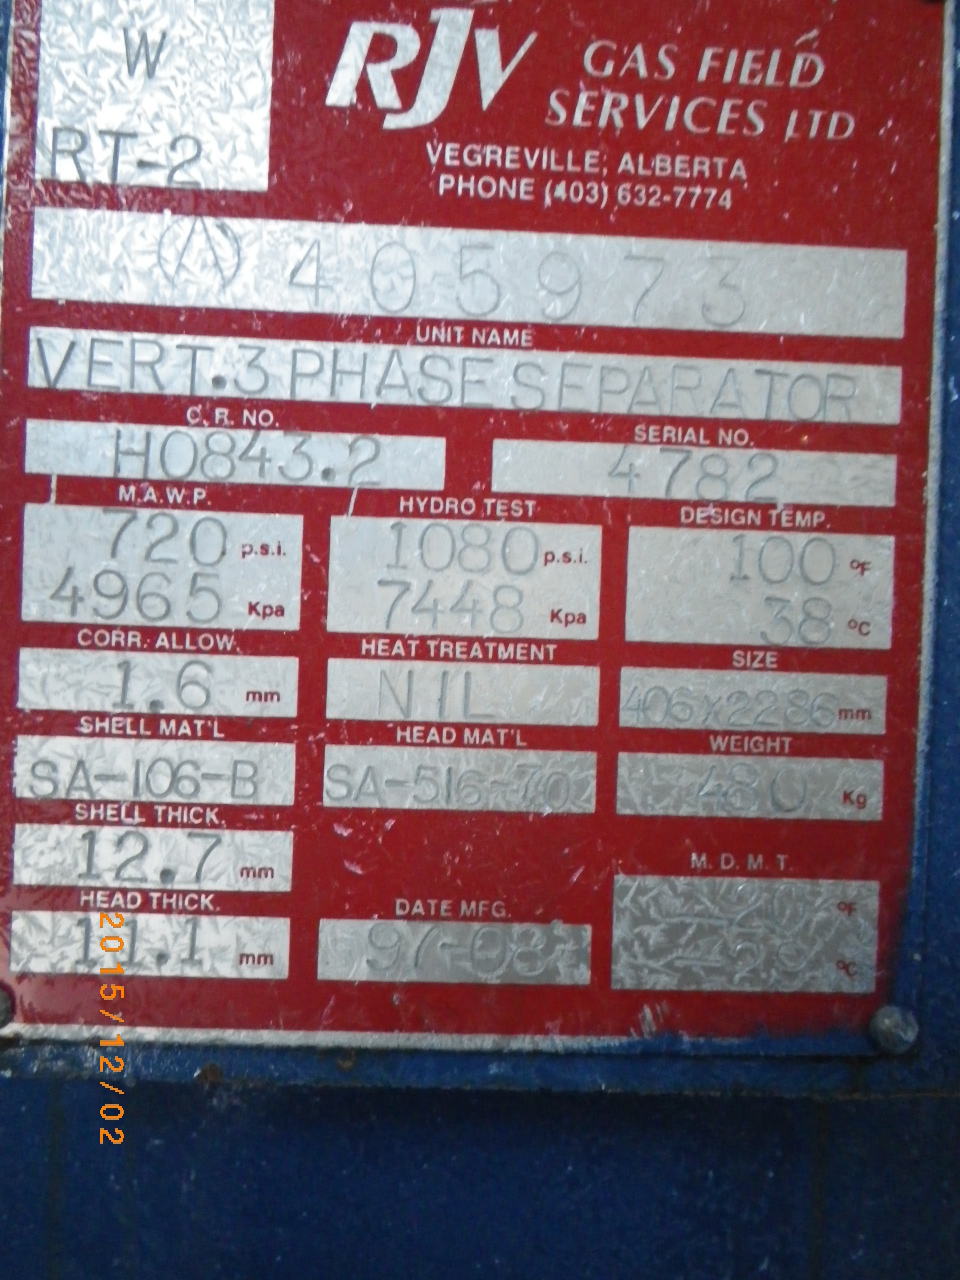 W
RT-2
RJV GAS FIELD
SERVICES LTD
VEGREVILLE, ALBERTA
PHONE (403) 632-7774
A 405973
UNIT NAME
VERT. 3 PHASE SEPARATOR
C.R. NO. SERIAL NO.
H0843.2 4782
M.A.W.P. HYDRO TEST DESIGN TEMP.
720 p.s.i. 1080 p.s.i. 100 °F
4965 Kpa 7448 Kpa 38 °C
CORR. ALLOW. HEAT TREATMENT SIZE
1.6 mm NIL 406x2286 mm
SHELL MAT'L HEAD MAT'L WEIGHT
SA-106-B SA-516-70 480 Kg
SHELL THICK.
12.7 mm
HEAD THICK. DATE MFG. M.D.M.T.
11.1 mm 97-08 °F
°C
2015/12/02